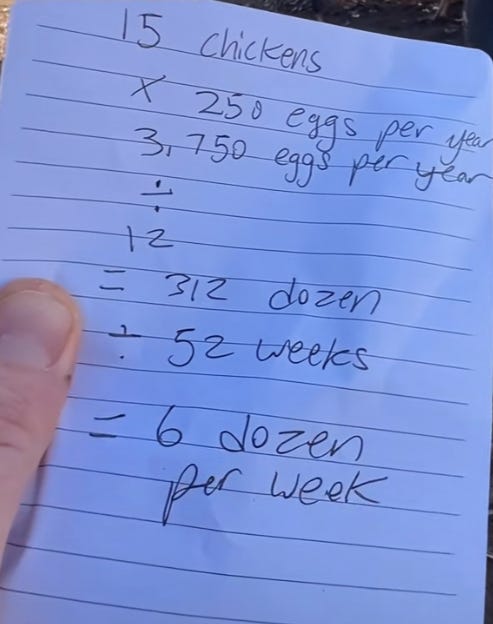 15 chickens
x 250 eggs per year
3,750 eggs per year
÷
12
= 312 dozen
÷ 52 weeks
= 6 dozen
per week